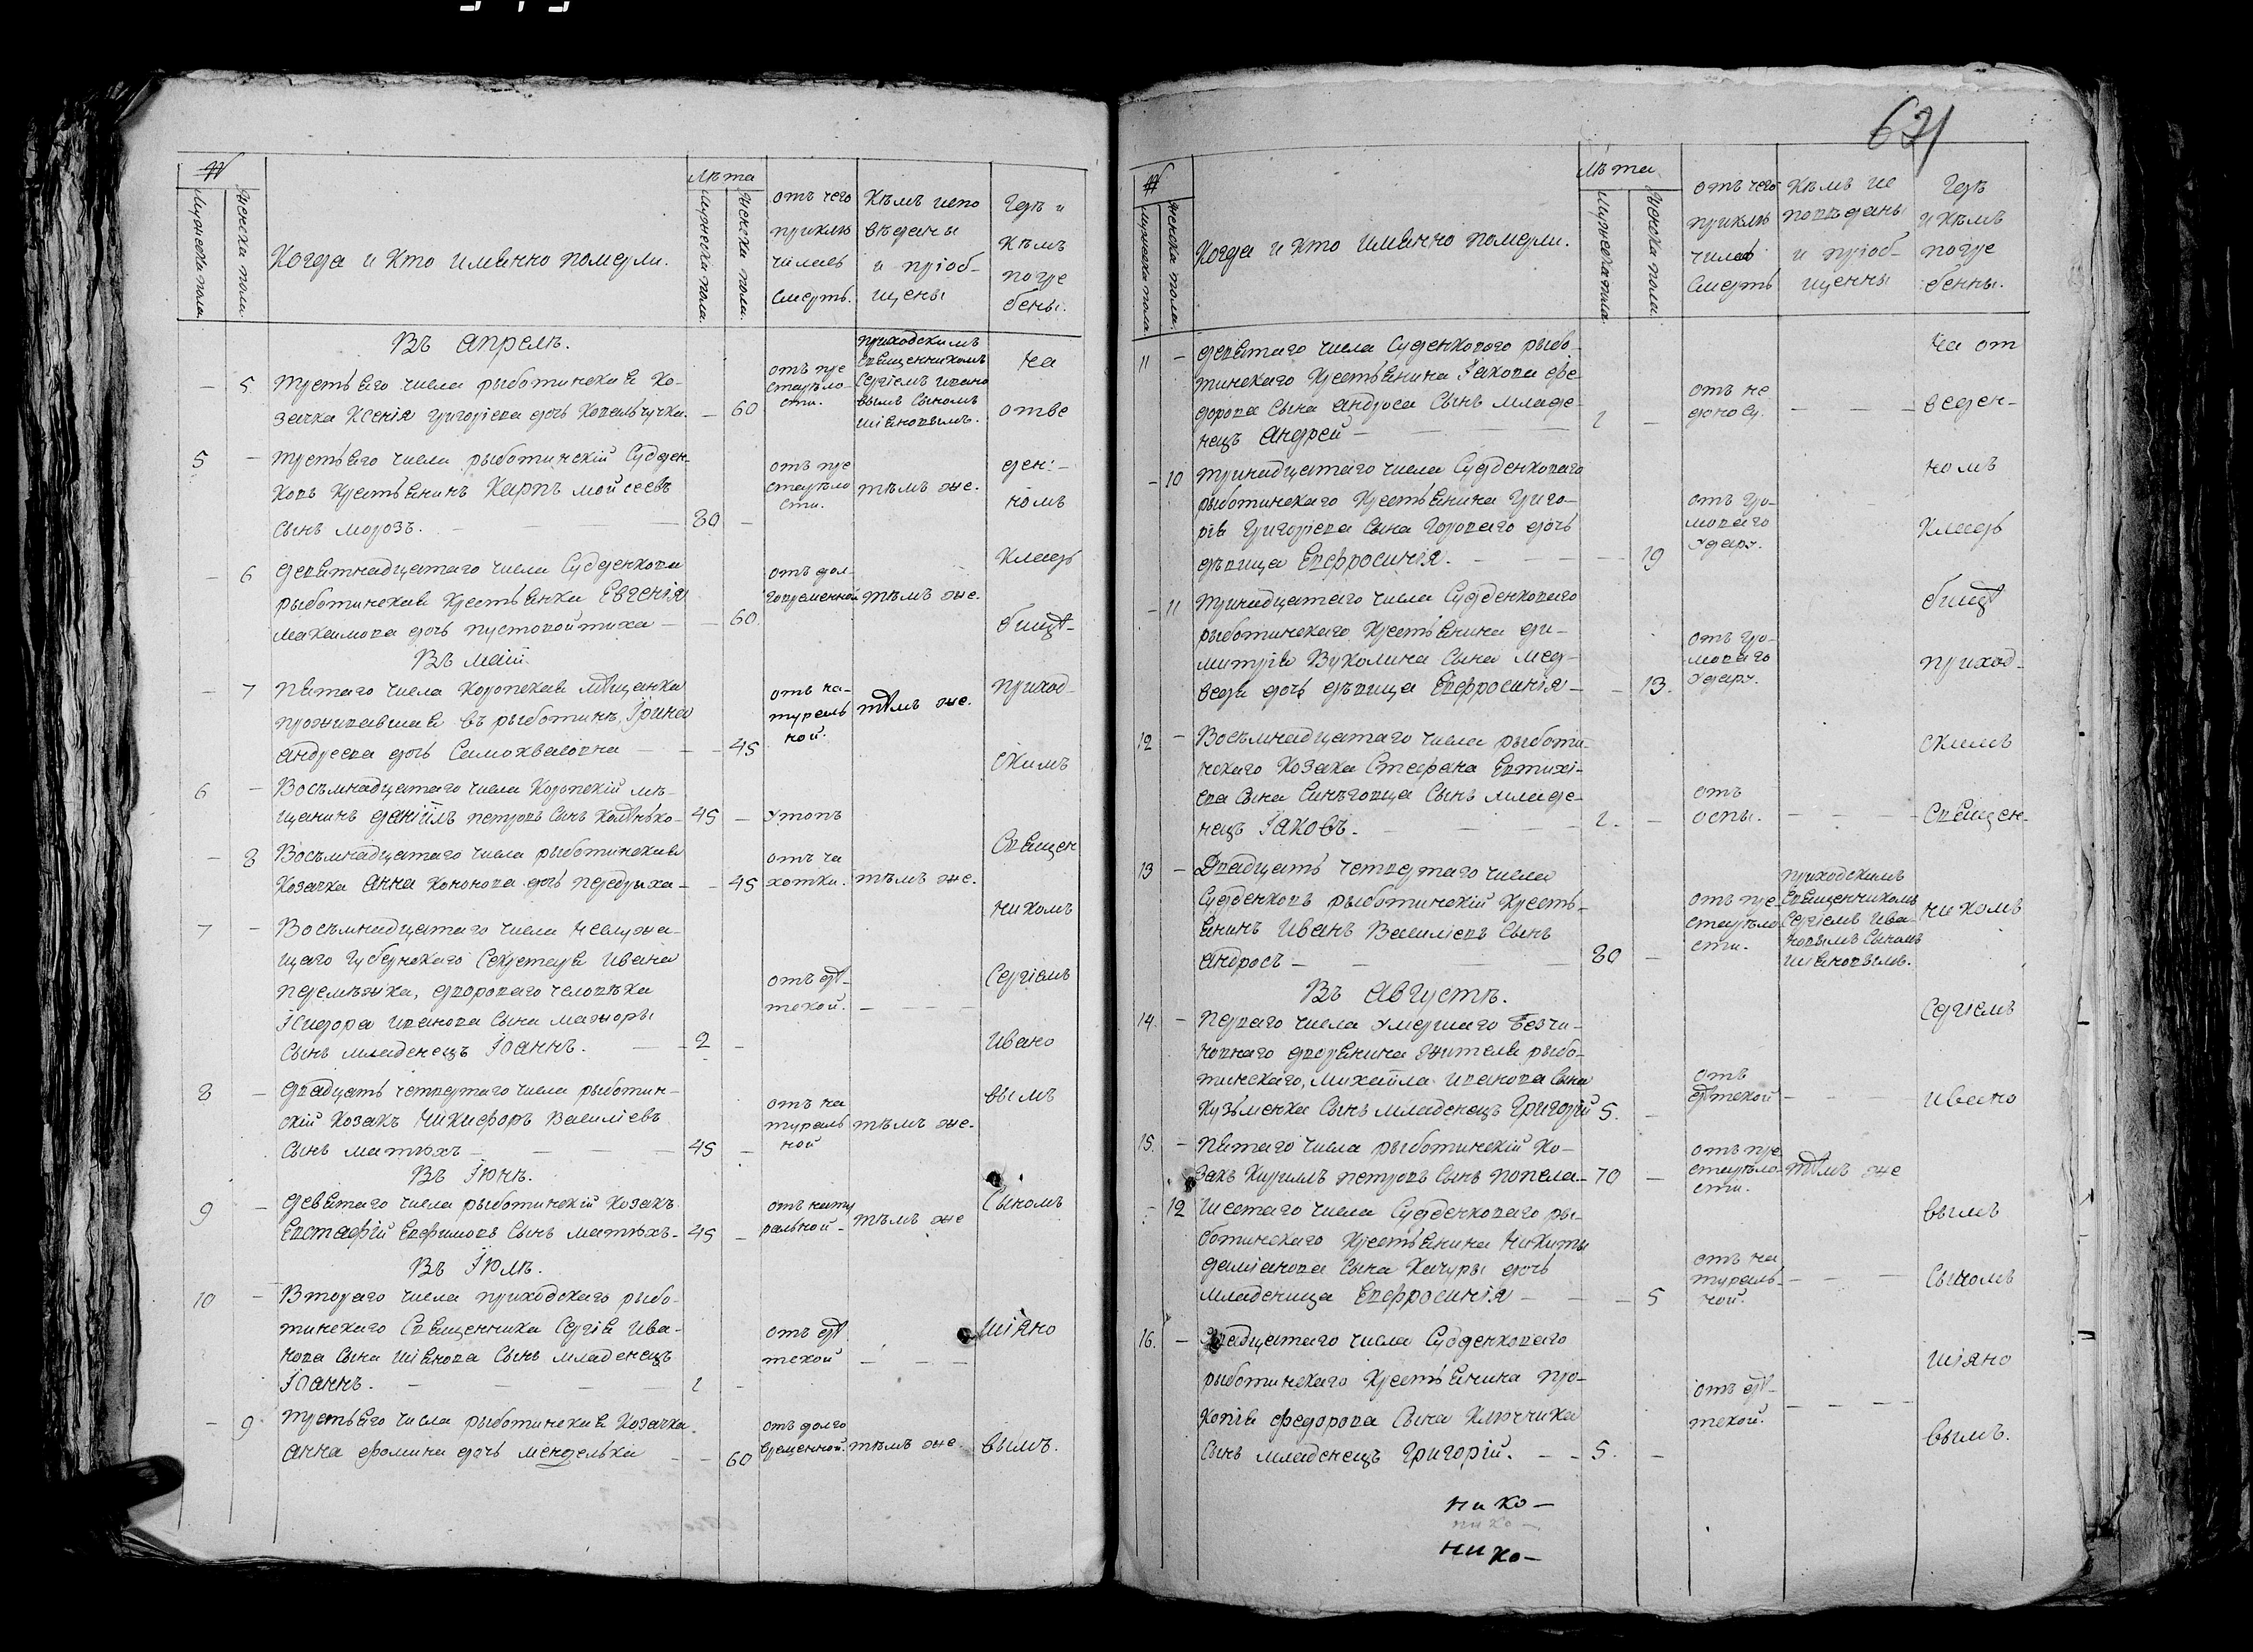 621
№
Мужеска пола.
Женска пола.
Когда и кто имянно померли.
Лѣта
Мужеска пола.
Женска пола.
отъ чего приклю чилась смерть.
Кѣмъ испо вѣданы и пріоб- щены
Гдѣ и кѣмъ погре бены.
Въ апрелѣ.
- 5 третьяго числа рыботинская ко-
зачка Ксенія григоріева дочь Ковальчучка. - 60
отъ пре старѣло- сти.
приходскимъ священникомъ Сергіемъ ивано вымъ Сыномъ шіяновымъ.
5 - третьяго числа рыботинскій Судден-
ковъ крестьянинъ Карпъ мойсеевъ
сынъ морозъ. - 80 -
отъ пре старѣло сти.
тѣмъ же.
- 6 девятнадцатаго числа Судденкова
рыботинская крестьянка Евгенія
максимова дочь пустовойтиха - - 60.
отъ дол- говременной
тѣмъ же.
Въ маіи.
- 7 пятаго числа коропская мѣщанка
проживавшая въ рыботинѣ, Ірина
андреева дочь Самохваловна - - 45
отъ на- тураль ной.
тѣмъ же.
6 - Восѣмнадцатаго числа коропскій мѣ-
щанинъ даніилъ петровъ сынъ 45 -
утопъ
- 8 Восѣмнадцатаго числа рыботинская
козачка анна кононова дочь - 45
отъ ча хотки.
тѣмъ же.
7 - Восѣмнадцатаго числа неслужа-
щаго губернскаго Секретаря ивана
дворового человѣка
Ісидора иванова сына мажоры
сынъ младенецъ Іоаннъ. - 2 -
отъ дѣ- тской.
- - -
8 - двадцать четвертаго числа рыботин-
скій козакъ Никифоръ василіевъ
сынъ матюхъ - 45 -
отъ на тураль ной
тѣмъ же.
Въ Іюнѣ.
9 - девятаго числа рыботинскій козакъ
Евстафій Ефимовъ сынъ матюхъ - 45 -
отъ нату ральной -
тѣмъ же
Въ Іюлѣ.
10 - Втораго числа приходскаго рыбо-
тинскаго Священника Сергія ива-
нова сына шіянова сынъ младенецъ
Іоаннъ. - 1 -
отъ дѣ тской
- - -
- 9 третьяго числа рыботинская козачка
анна фомина дочь - - 60
отъ долго временной.
тѣмъ же.
на отве ден:- номъ кладь бищѣ- приход- скимъ Священ никомъ Сергіемъ ивано вымъ Сыномъ шіяно вымъ.
№
Мужеска пола.
Женска пола.
Когда и кто имянно померли.
Лѣта
Мужеска пола.
Женска пола.
отъ чего приклю чилась смерть
Кѣмъ ис повѣданы и пріоб- щенны
Гдѣ и кѣмъ погре бенны.
11 - девятаго числа Суденкового рыбо-
тинскаго крестьянина Іакова фе-
дорова сына андроса сынъ младе-
нецъ андрей - 1 -
отъ не доносу.
- - -
- 10 тринадцатаго числа Судденковаго
рыботинскаго крестьянина григо-
рія григоріева сына дочь
дѣвица Евфросинія. - - 19
отъ гро- моваго удару.
- 11 тринадцатаго числа Судденковаго
рыботинскаго крестьянина ди-
митрія Вуколина сына мед-
ведя дочь дѣвица Евфросинія - - 13.
отъ гро- моваго удару.
12 - Восѣмнадцатаго числа рыботи-
нскаго козака Стефана Евтихі-
ева сына Синѣговца сынъ младе-
нецъ Іаковъ. - 1. -
отъ оспы.
- - -
13 - Двадцать четвертаго числа
Судденковъ рыботинскій кресть-
янинъ иванъ Василіевъ сынъ
андросъ - 80 -
отъ пре старѣло сти.
приходскимъ священникомъ Сергіемъ ива- новымъ Сыномъ шіяновымъ.
Въ августѣ.
14. - перваго числа умершаго безчи-
новнаго дворянина жителя рыбо-
тинскаго, михайла иванова сына
Кузьменка сынъ младенецъ григорій 5. -
отъ дѣтской
- - -
15. - пятаго числа рыботинскій ко-
закъ Кирилъ петровъ сынъ попела - 70 -
отъ пре старѣло- сти.
тѣмъ же
- 12 шестаго числа Судденковаго ры-
ботинскаго крестьянина никиты
даміанова сына качуры дочь
младеница Евфросинія - - 5
отъ на тураль- ной.
- - -
16. - двадцатаго числа Судденковаго
рыботинскаго крестьянина про-
копія федорова сына ключника
сынъ младенецъ григорій. - 5. -
отъ дѣ- тской.
- - -
на от веден- номъ кладь бищѣ приход- скимъ Священ- никомъ Сергіемъ ивано вымъ Сыномъ шіяно вымъ.
нико-
нико-
нико-